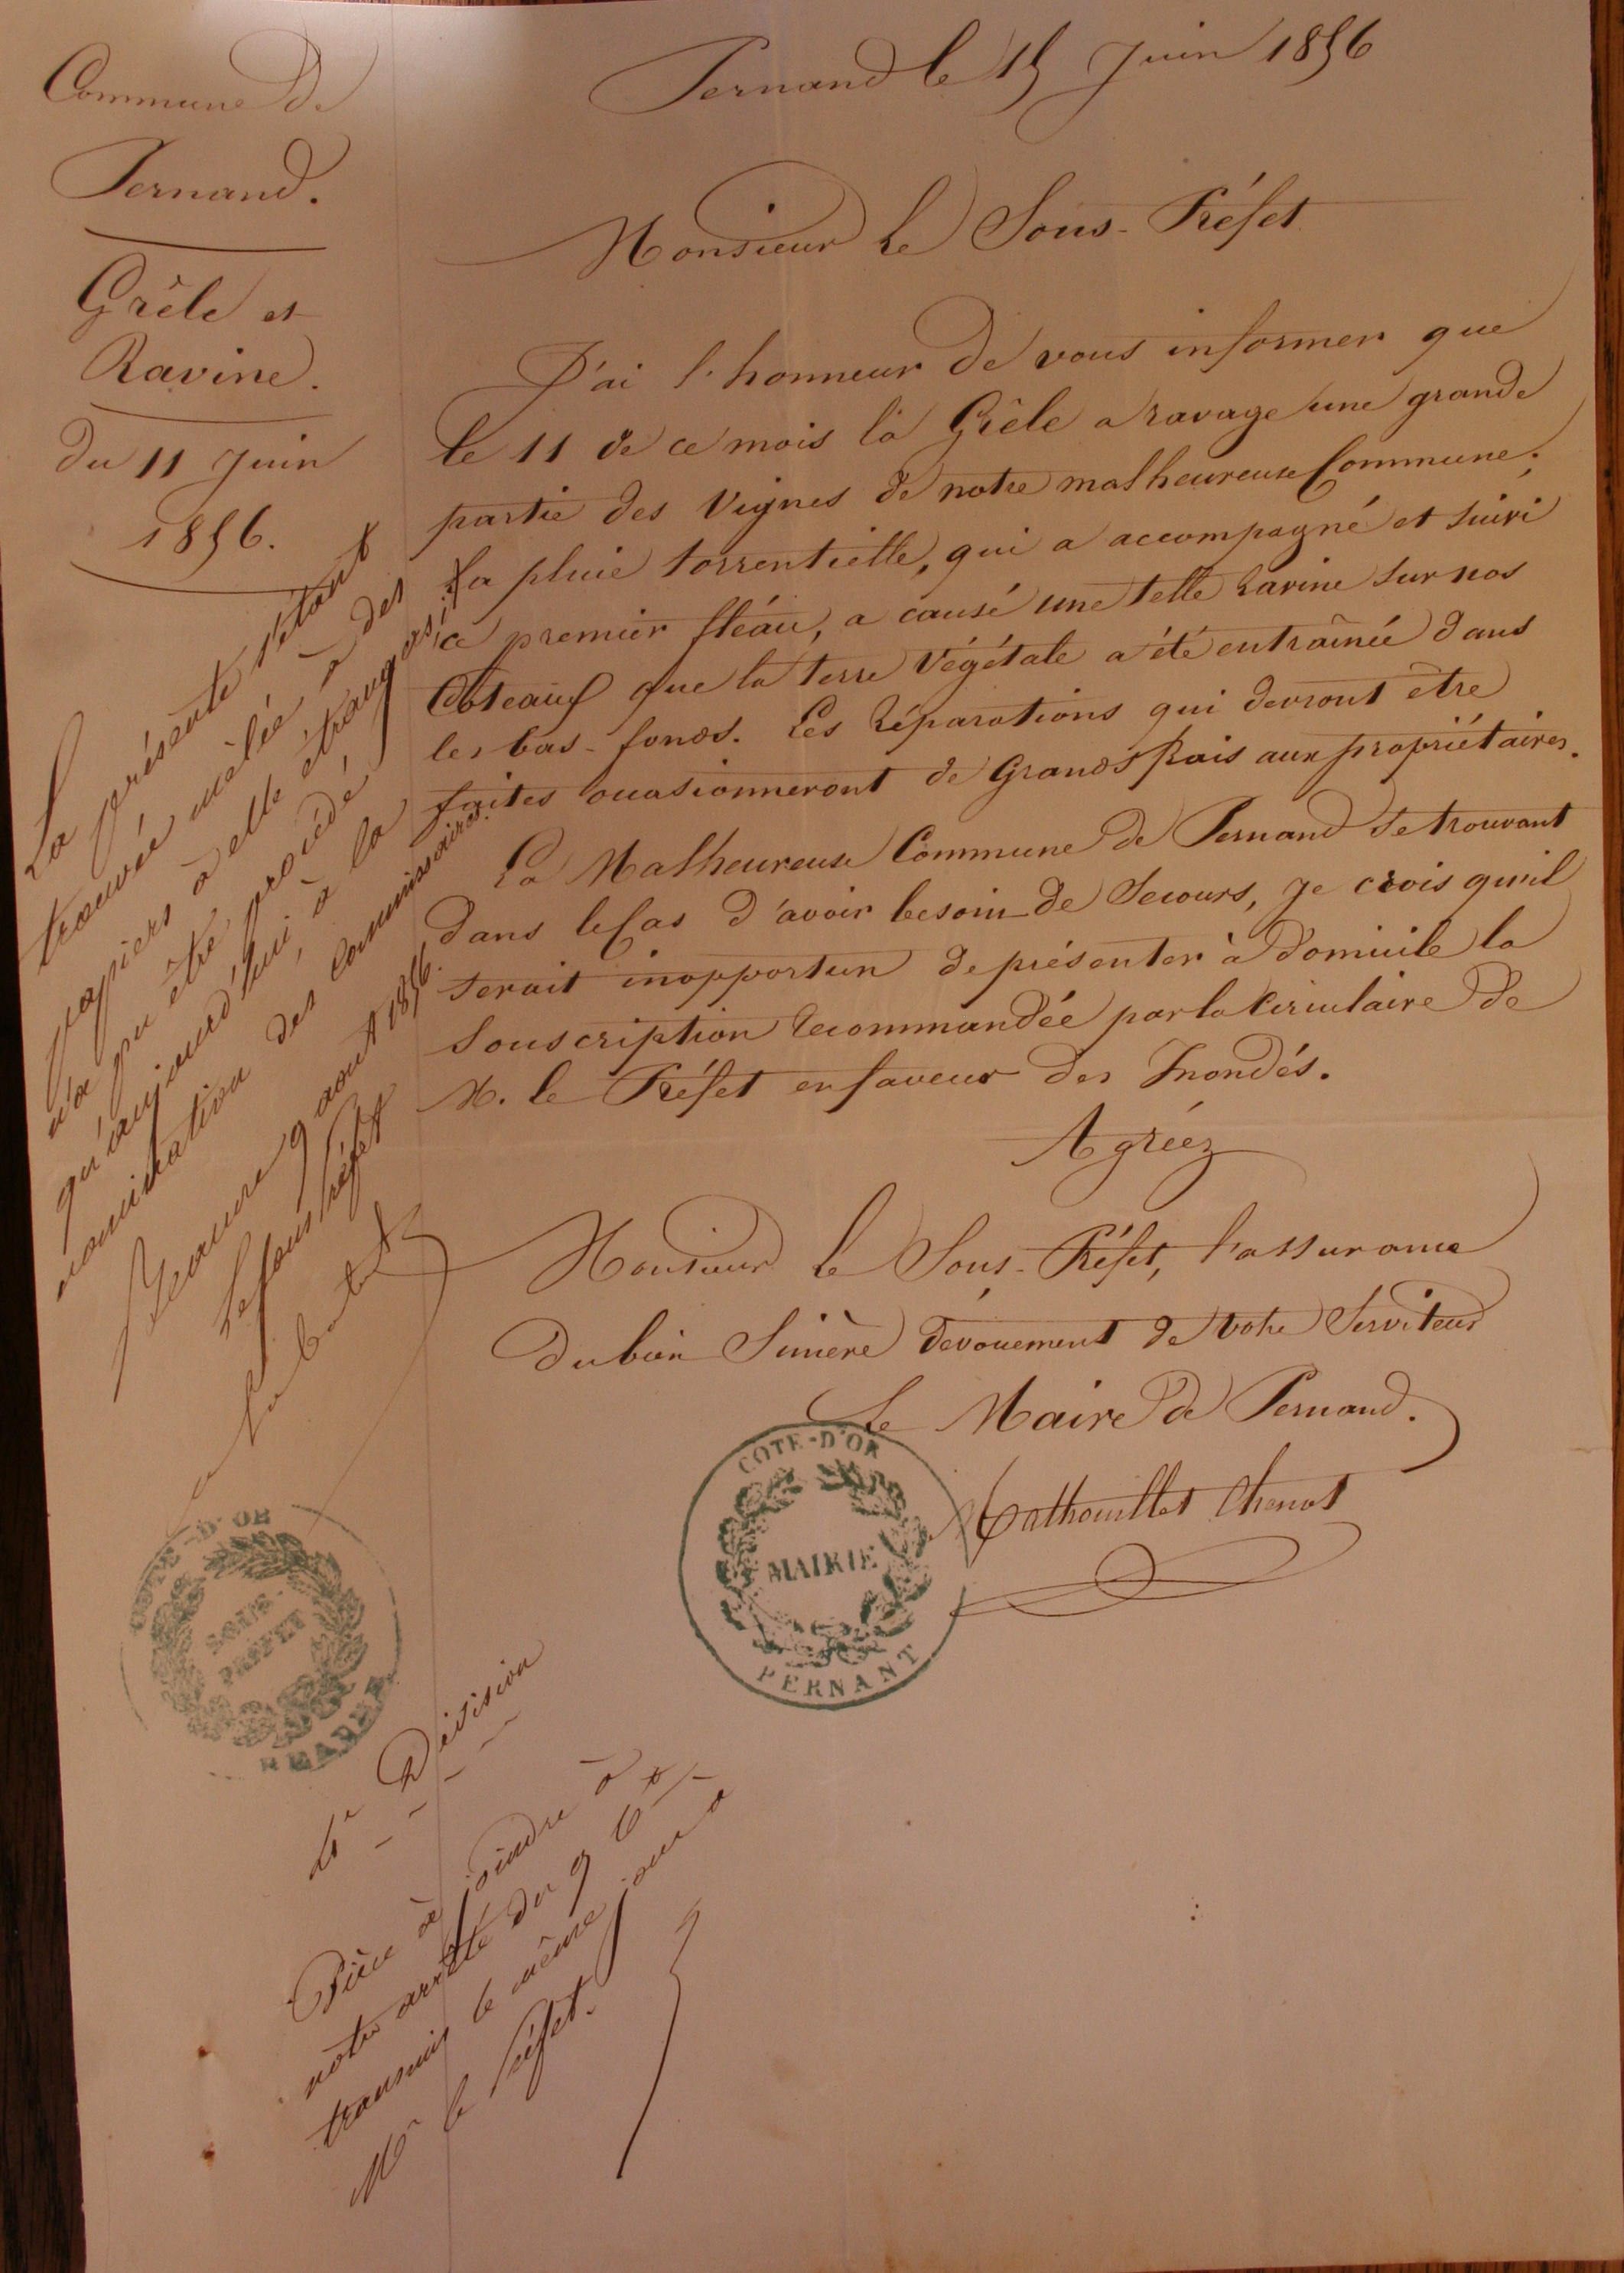 Commune de
Pernand.
Grêle et
Ravine.
du 11 Juin
1856.
Pernand le 15 Juin 1856
Monsieur le Sous-Préfet
J'ai l'honneur de vous informer que
le 11 de ce mois la Grêle a ravagé une grande
partie des Vignes de notre malheureuse Commune;
la pluie torrentielle, qui a accompagné et suivi
ce premier fléau, a causé une telle ravine sur nos
Coteaux que la terre Végétale a été entraînée dans
les bas-fonds. Les réparations qui devront être
faites ocasionneront de Grands frais aux propriétaires.
La Malheureuse Commune de Pernand se trouvant
dans le Cas d'avoir besoin de Secours, je crois qu'il
serait inopportun de présenter à Domicile la
Souscription recommandée par la Circulaire de
M. le Préfet en faveur des Inondés.
Agréez
Monsieur le Sous-Préfet, l'assurance
du bien Sincère dévouement de votre Serviteur
Le Maire de Pernand.
Chenot
COTE-D'OR
MAIRIE
PERNANT
La présente s'étant
trouvée mêlée à des
papiers à elle étrangers, il
n'a pu être procédé
qu'aujourd'hui, à la
nomination des Commissaires.
Beaune 9 aout 1856.
Le sous préfet
COTE-D'OR
SOUS-
PRÉFET
BEAUNE
Division
Pièce à joindre à
notre arrêté du 9 Ct
transmis le même jour a
Mr le Préfet.